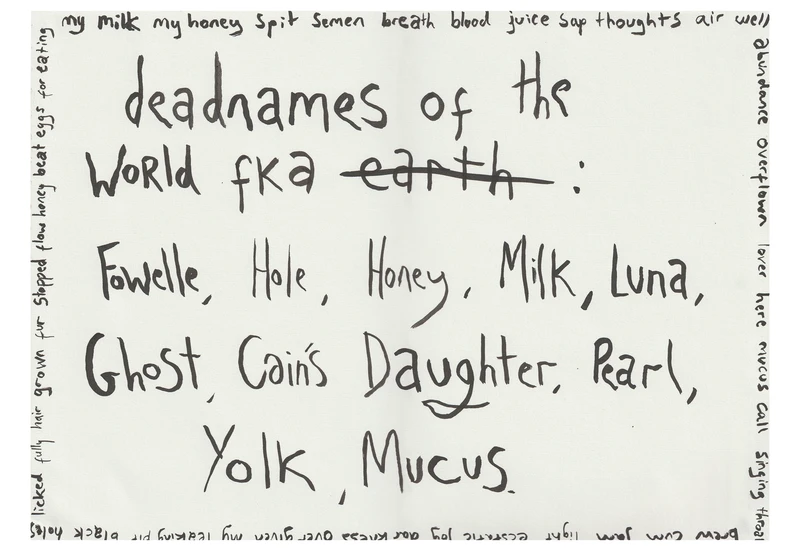 my milk my honey Spit Semen breath blood juice sap thoughts air well
deadnames of the
World fka earth :
Fowelle, Hole, Honey, Milk, Luna,
Ghost, Cain's Daughter, Pearl,
Yolk, Mucus.
abundance overflown lover here mucus call singing throat
warm jam light ecstatic joy our knees over given my leaking pit black holes
licked fully hair grown fur Stopped flow honey beat eggs for eating